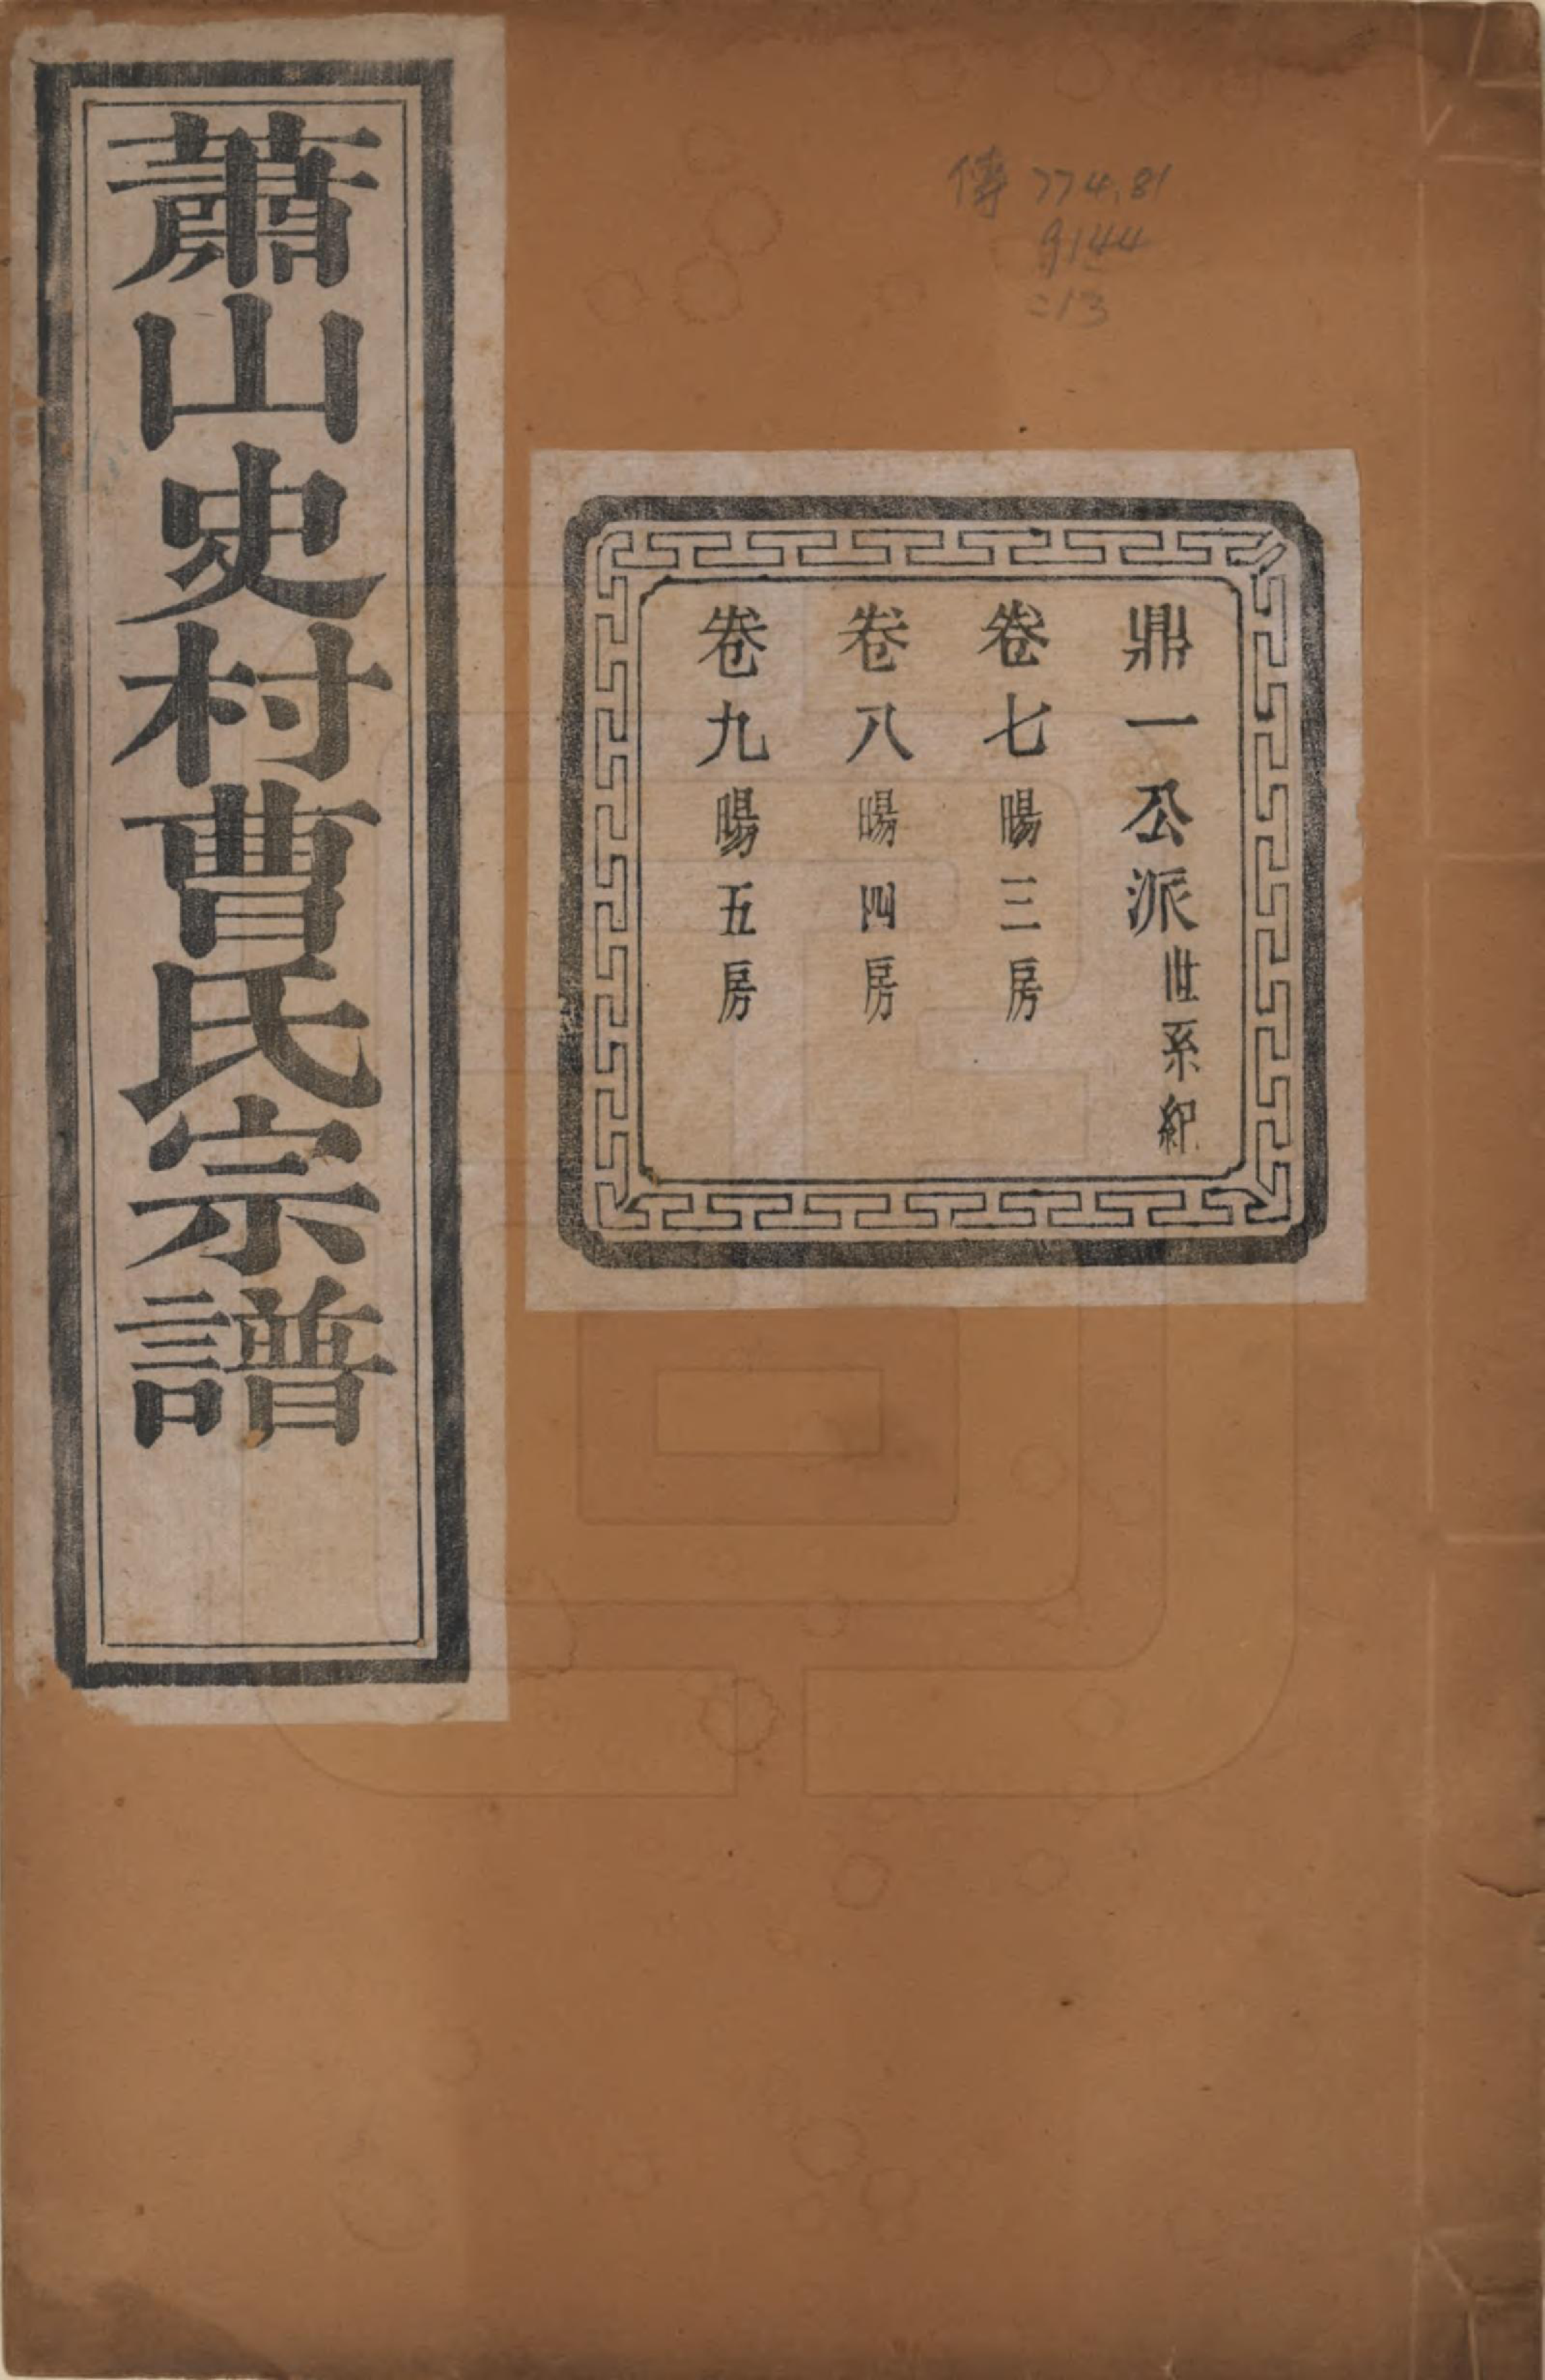 蕭山史村曹氏宗譜
傳 774.81
9144
:13
鼎一公派世系紀
卷七暘三房
卷八暘四房
卷九暘五房